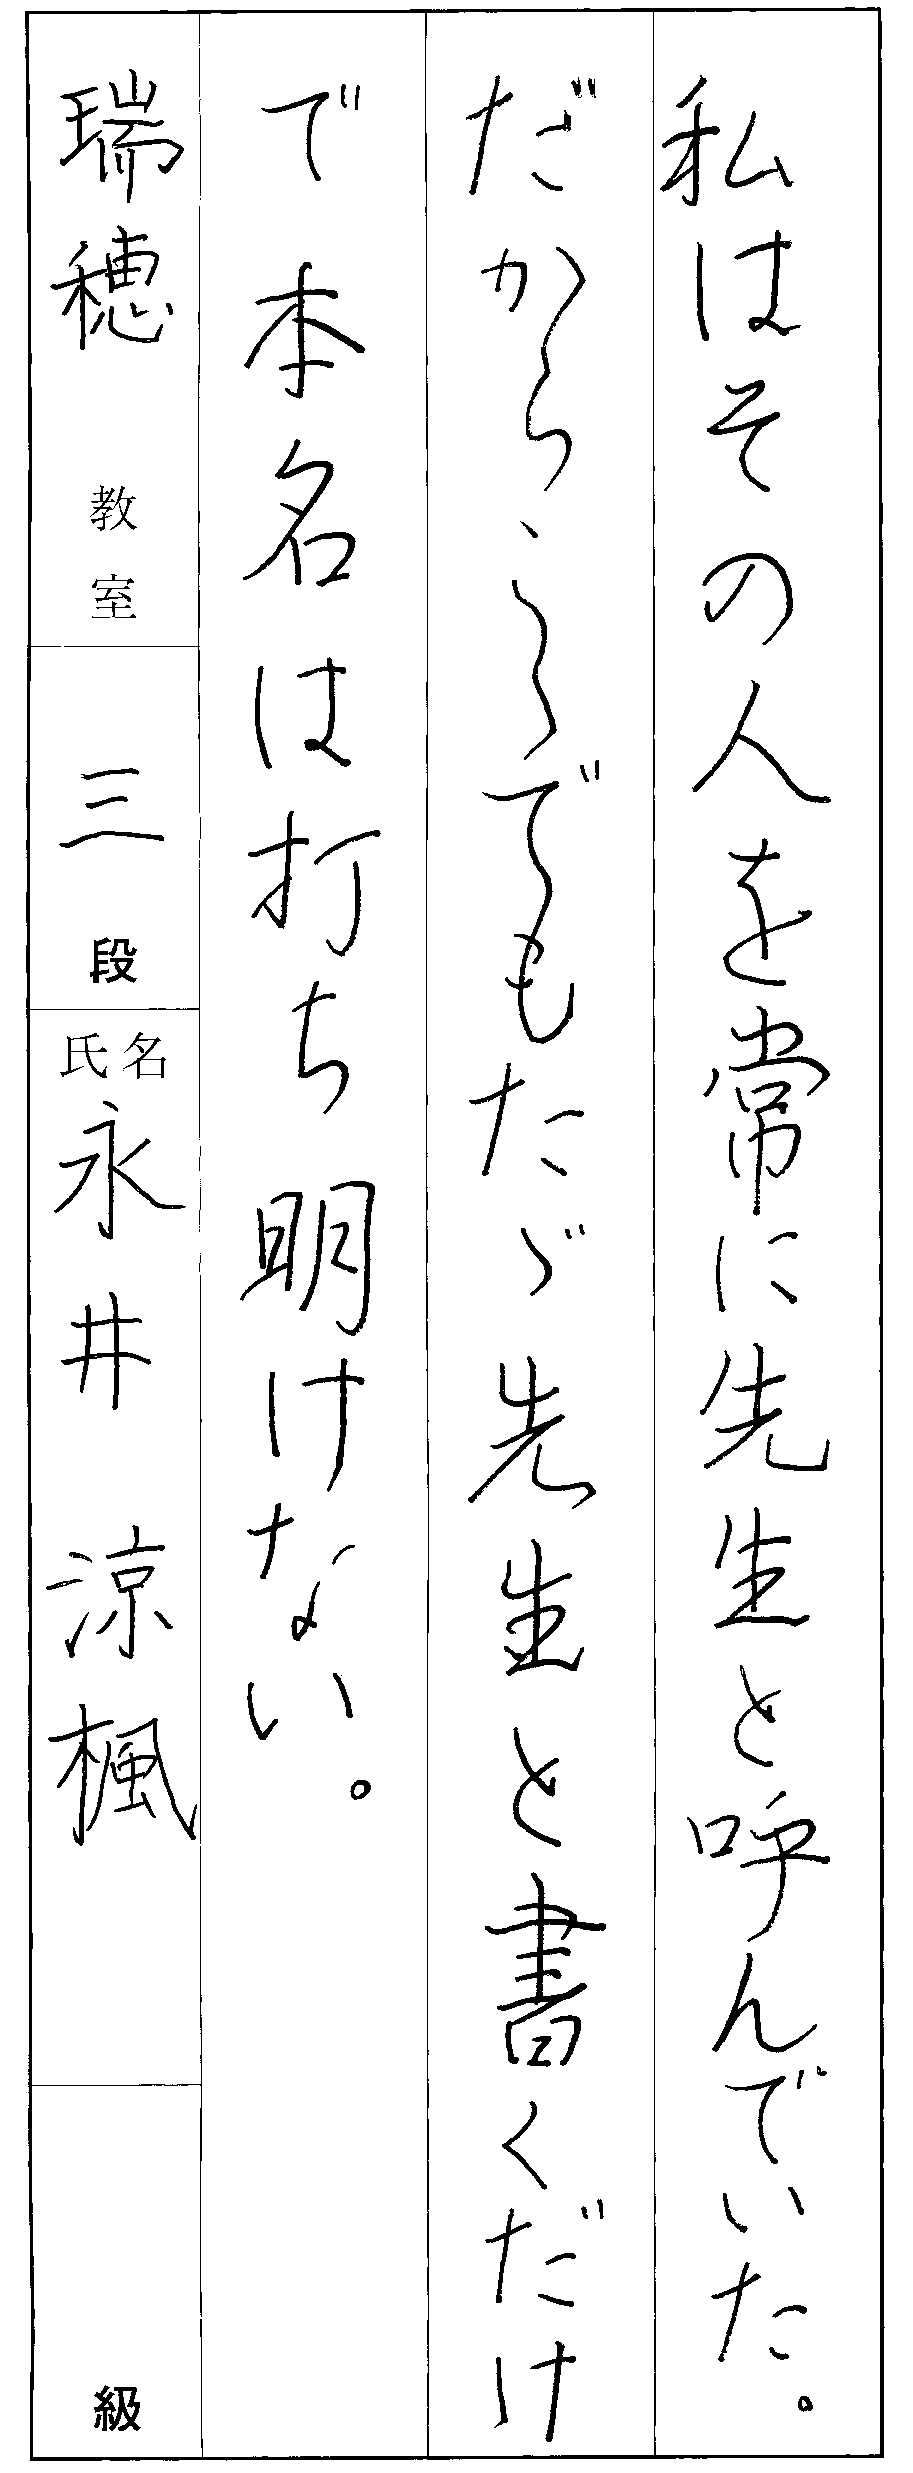 私はその人を常に先生と呼んでいた。
だから、こゝでもたゞ先生と書くだけ
で本名は打ち明けない。
瑞穂 教室 三 段 氏名 永井 涼楓 級